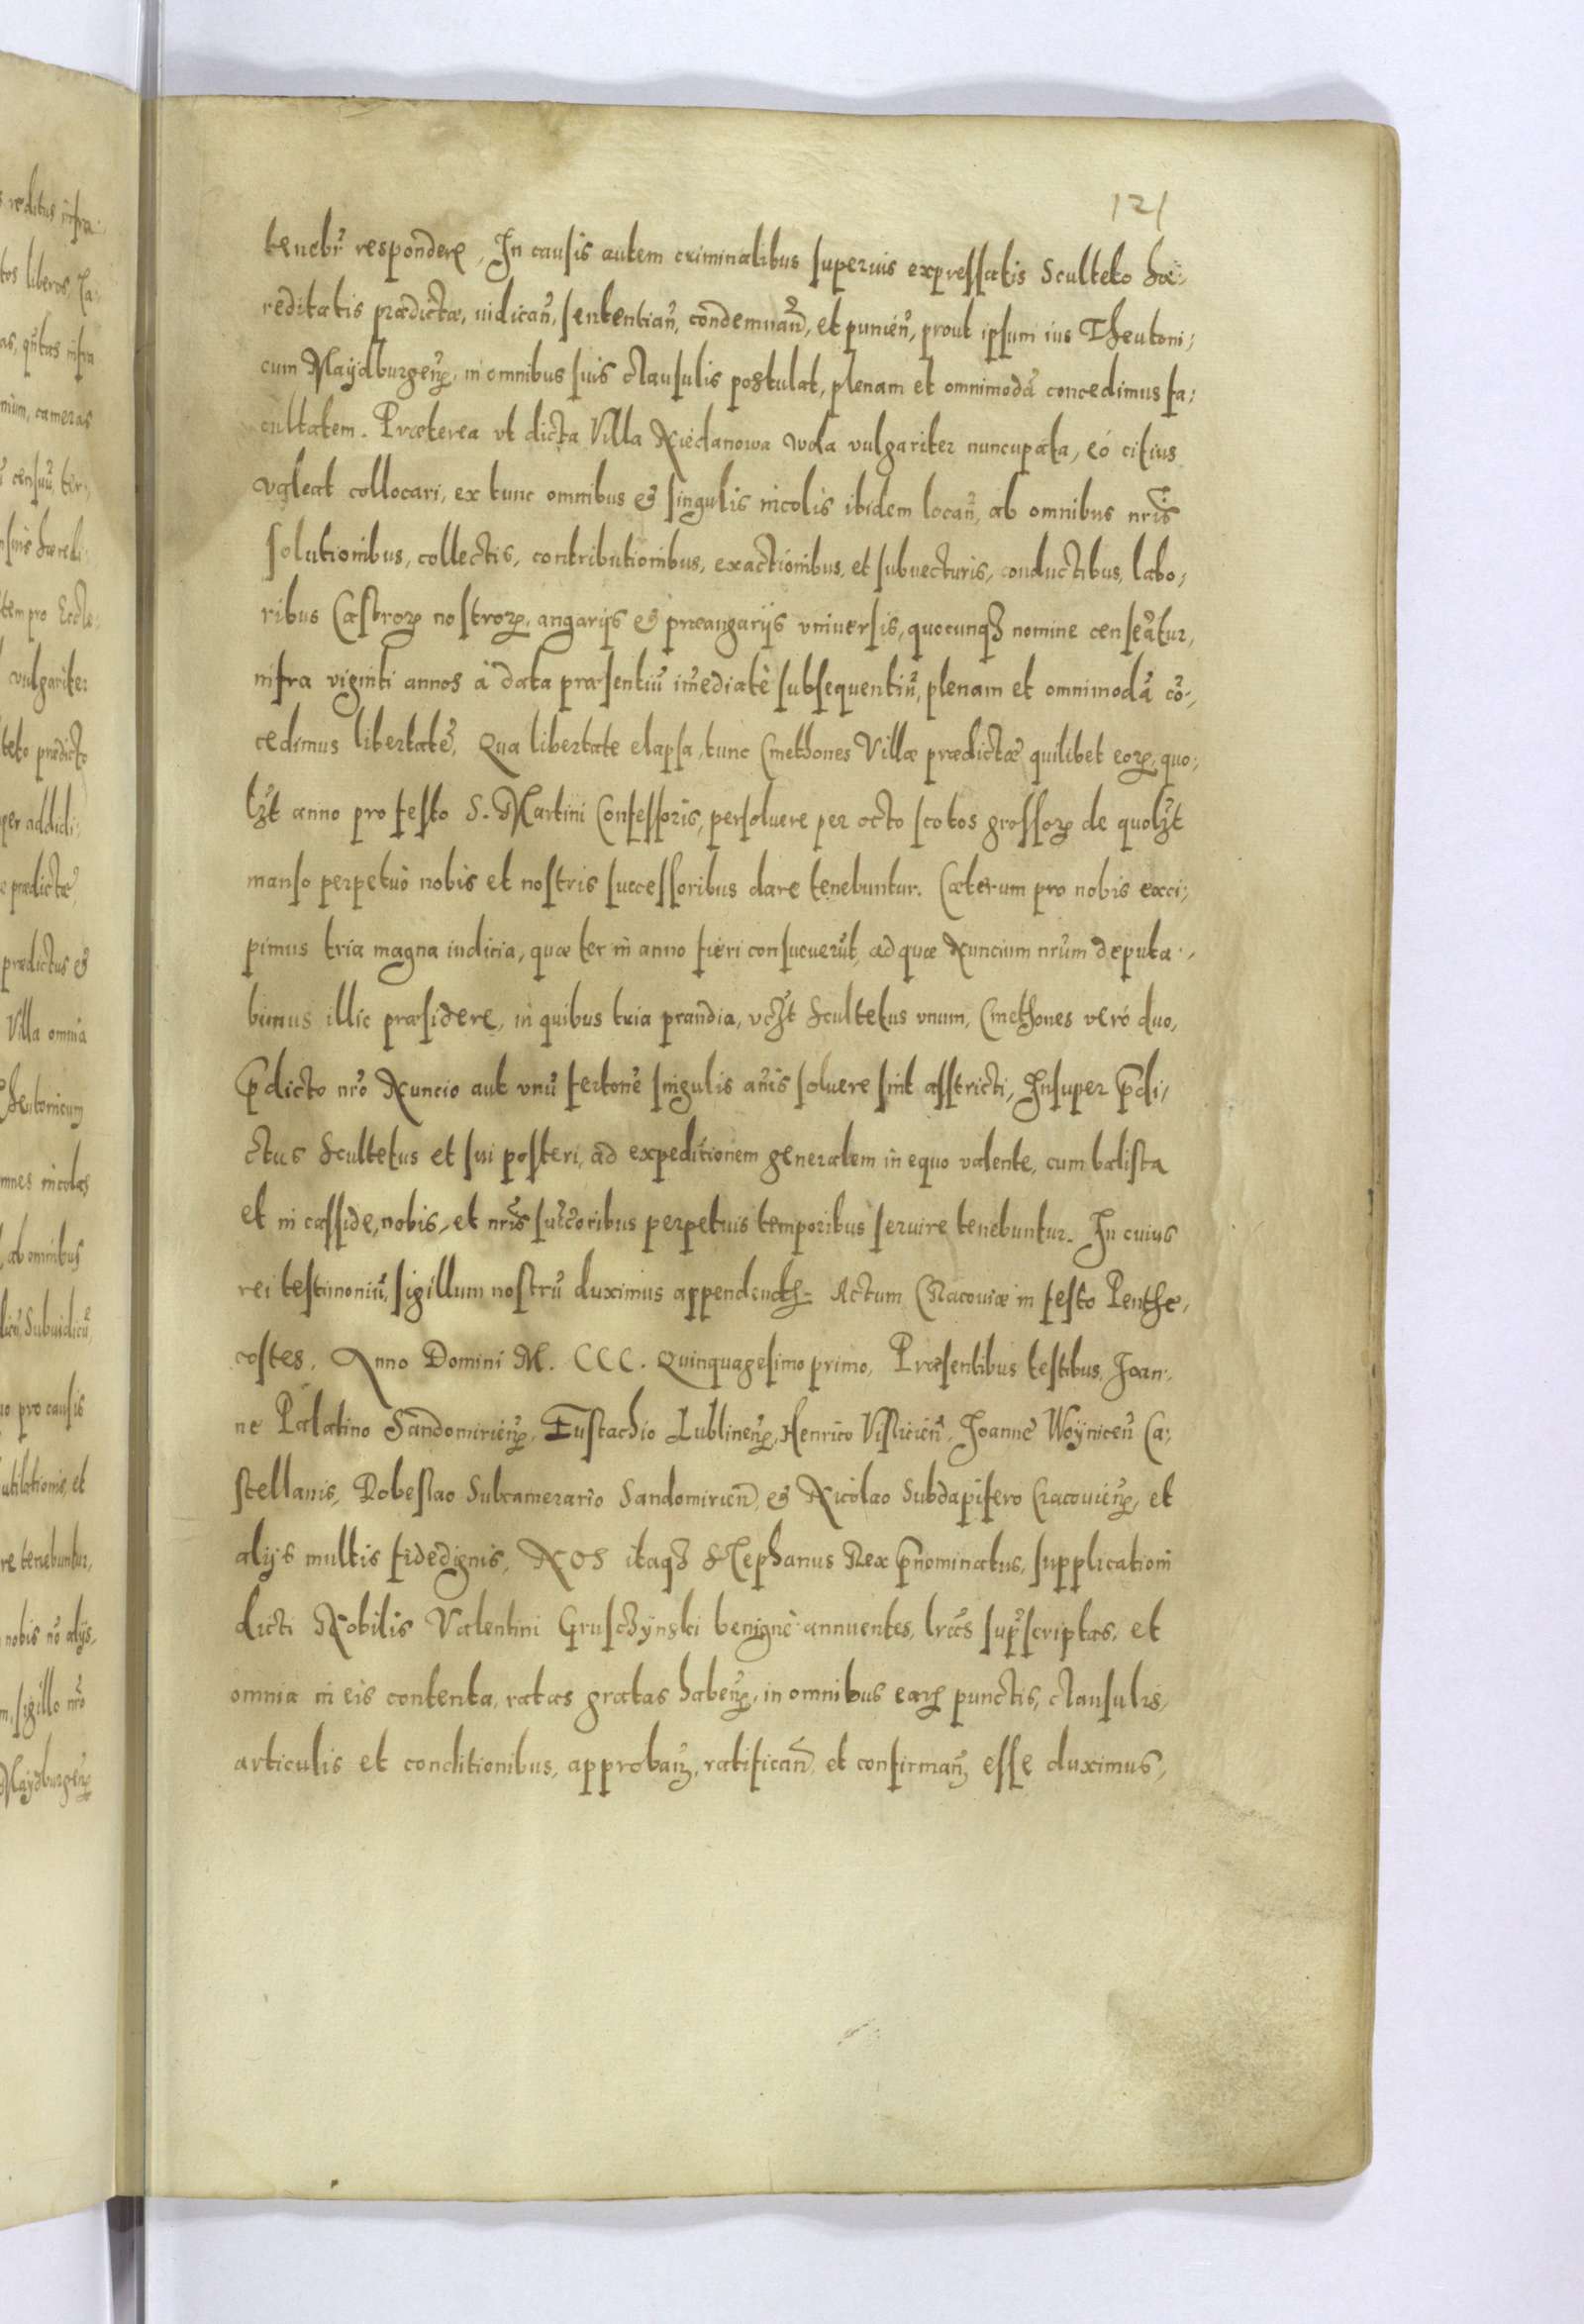 121
tenebr̃ respondere. In causis autem criminalibus superius expressatis Sculteto hæ-
reditatis prædictæ, iudicañ, sententiañ, condemnañ, et punień, prout ipsum ius Theutoni-
cum Maÿdburgeñ, in omnibus suis clausulis postulat, plenam et omnimodã concedimus fa-
cultatem. Præterea vt dicta Villa Niedanowa wola vulgariter nuncupata, eó citius
valeat collocari, ex tunc omnibus & singulis incolis ibidem locañ, ab omnibus nr̃is
solutionibus, collectis, contributionibus, exactionibus, et subuecturis, conductibus, labo-
ribus Castroꝝ nostroꝝ, angarijs & præangarijs vniuersis, quocunqꝫ nomine censeãtur,
infra viginti annos à data præsentiũ im̃ediatè subsequentiũ, plenam et omnimodã cõ-
cedimus libertatẽ. Qua libertate elapsa, tunc Cmethones Villæ prædictæ quilibet eoꝝ, quo-
lꝫt anno pro festo S. Martini Confessoris, persoluere per octo scotos grossoꝝ de quolꝫt
manso perpetuò nobis et nostris successoribus dare tenebuntur. Cæterum pro nobis exci-
pimus tria magna iudicia, quæ ter in anno fieri consueuerũt, ad quæ Nuncium nr̃um deputa-
bimus illic præsidere, in quibus tria prandia, vcꝫt Scultetus vnum, Cmethones veró duo,
p̃dicto nr̃o Nuncio aut vnũ fertonẽ singulis añis soluere sint astricti, Insuper p̃di-
ctus Scultetus et sui posteri, ad expeditionem generalem in equo valente, cum balista
et in casside, nobis, et nr̃is succ̃oribus perpetuis temporibus seruire tenebuntur. In cuius
rei testimoniũ, sigillum nostrũ duximus appendendũ. Actum Cracouiæ in festo Penthe-
costes. Anno Domini M. CCC. Quinquagesimo primo, Præsentibus testibus, Joan-
ne Palatino Sandomirieñ, Eustachio Lublineñ, Henrico Visliciеñ, Joanne Woÿniceñ Ca-
stellanis, Dobeslao Subcamerario Sandomirieñ, & Nicolao Subdapifero Cracouieñ, et
alijs multis fidedignis, NOS itaqꝫ Stephanus Rex p̃nominatus, supplicationi
dicti Nobilis Valentini Gruschÿnski benignè annuentes, lr̃as sup̃scriptas, et
omnia in eis contenta, ratas gratas habeñ, in omnibus eaꝝ punctis, clausulis,
articulis et conditionibus, approbañ, ratificañ et confirmañ esse duximus,